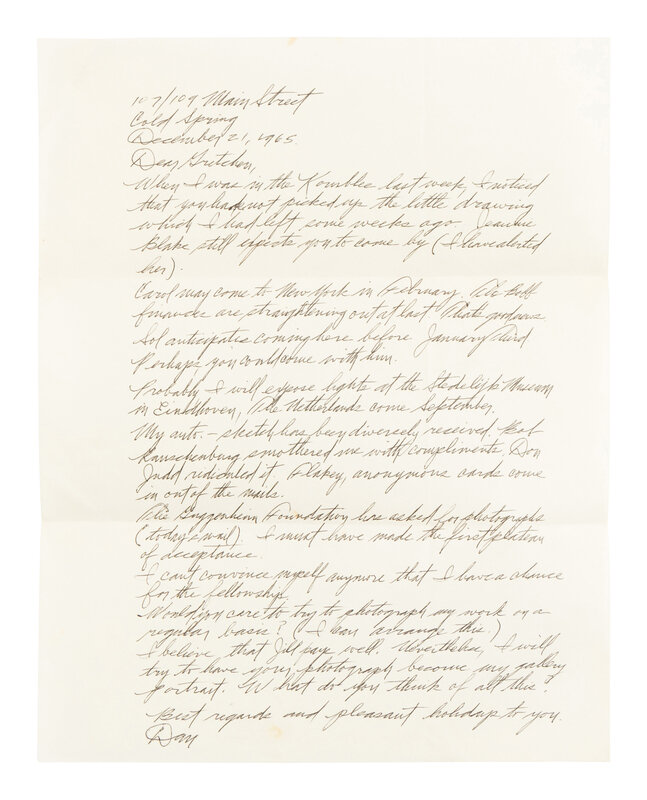 107/109 Main Street
Cold Spring
December 21, 1965.
Dear Gretchen,
When I was in the Kornblee last week, I noticed
that you had not picked up the little drawing
which I had left some weeks ago. Jeanne
Blake still expects you to come by (I have alerted
her).
Carol may come to New York in February. The
finances are straightening out at last. That's good news
Sol anticipates coming here before January third
Perhaps you could come with him.
Probably I will expose lights at the Stedelijk Museum
in Eindhoven, The Netherlands come September.
My auto.-sketch has been diversely received. Bob
Rauschenburg smothered me with compliments, Don
Judd ridiculed it. Flakey, anonymous cards come
in out of the mails.
The Guggenheim Foundation has asked for photographs
(today's mail). I must have made the first plateau
of acceptance.
I cant convince myself anymore that I have a chance
for the fellowship.
Would you care to try to photograph my work on a
regular basis? (I can arrange this)
I believe that Jill pays well. Nevertheless, I will
try to have your photograph become my gallery
portrait. What do you think of all this?
Best regards and pleasant holidays to you.
Dan